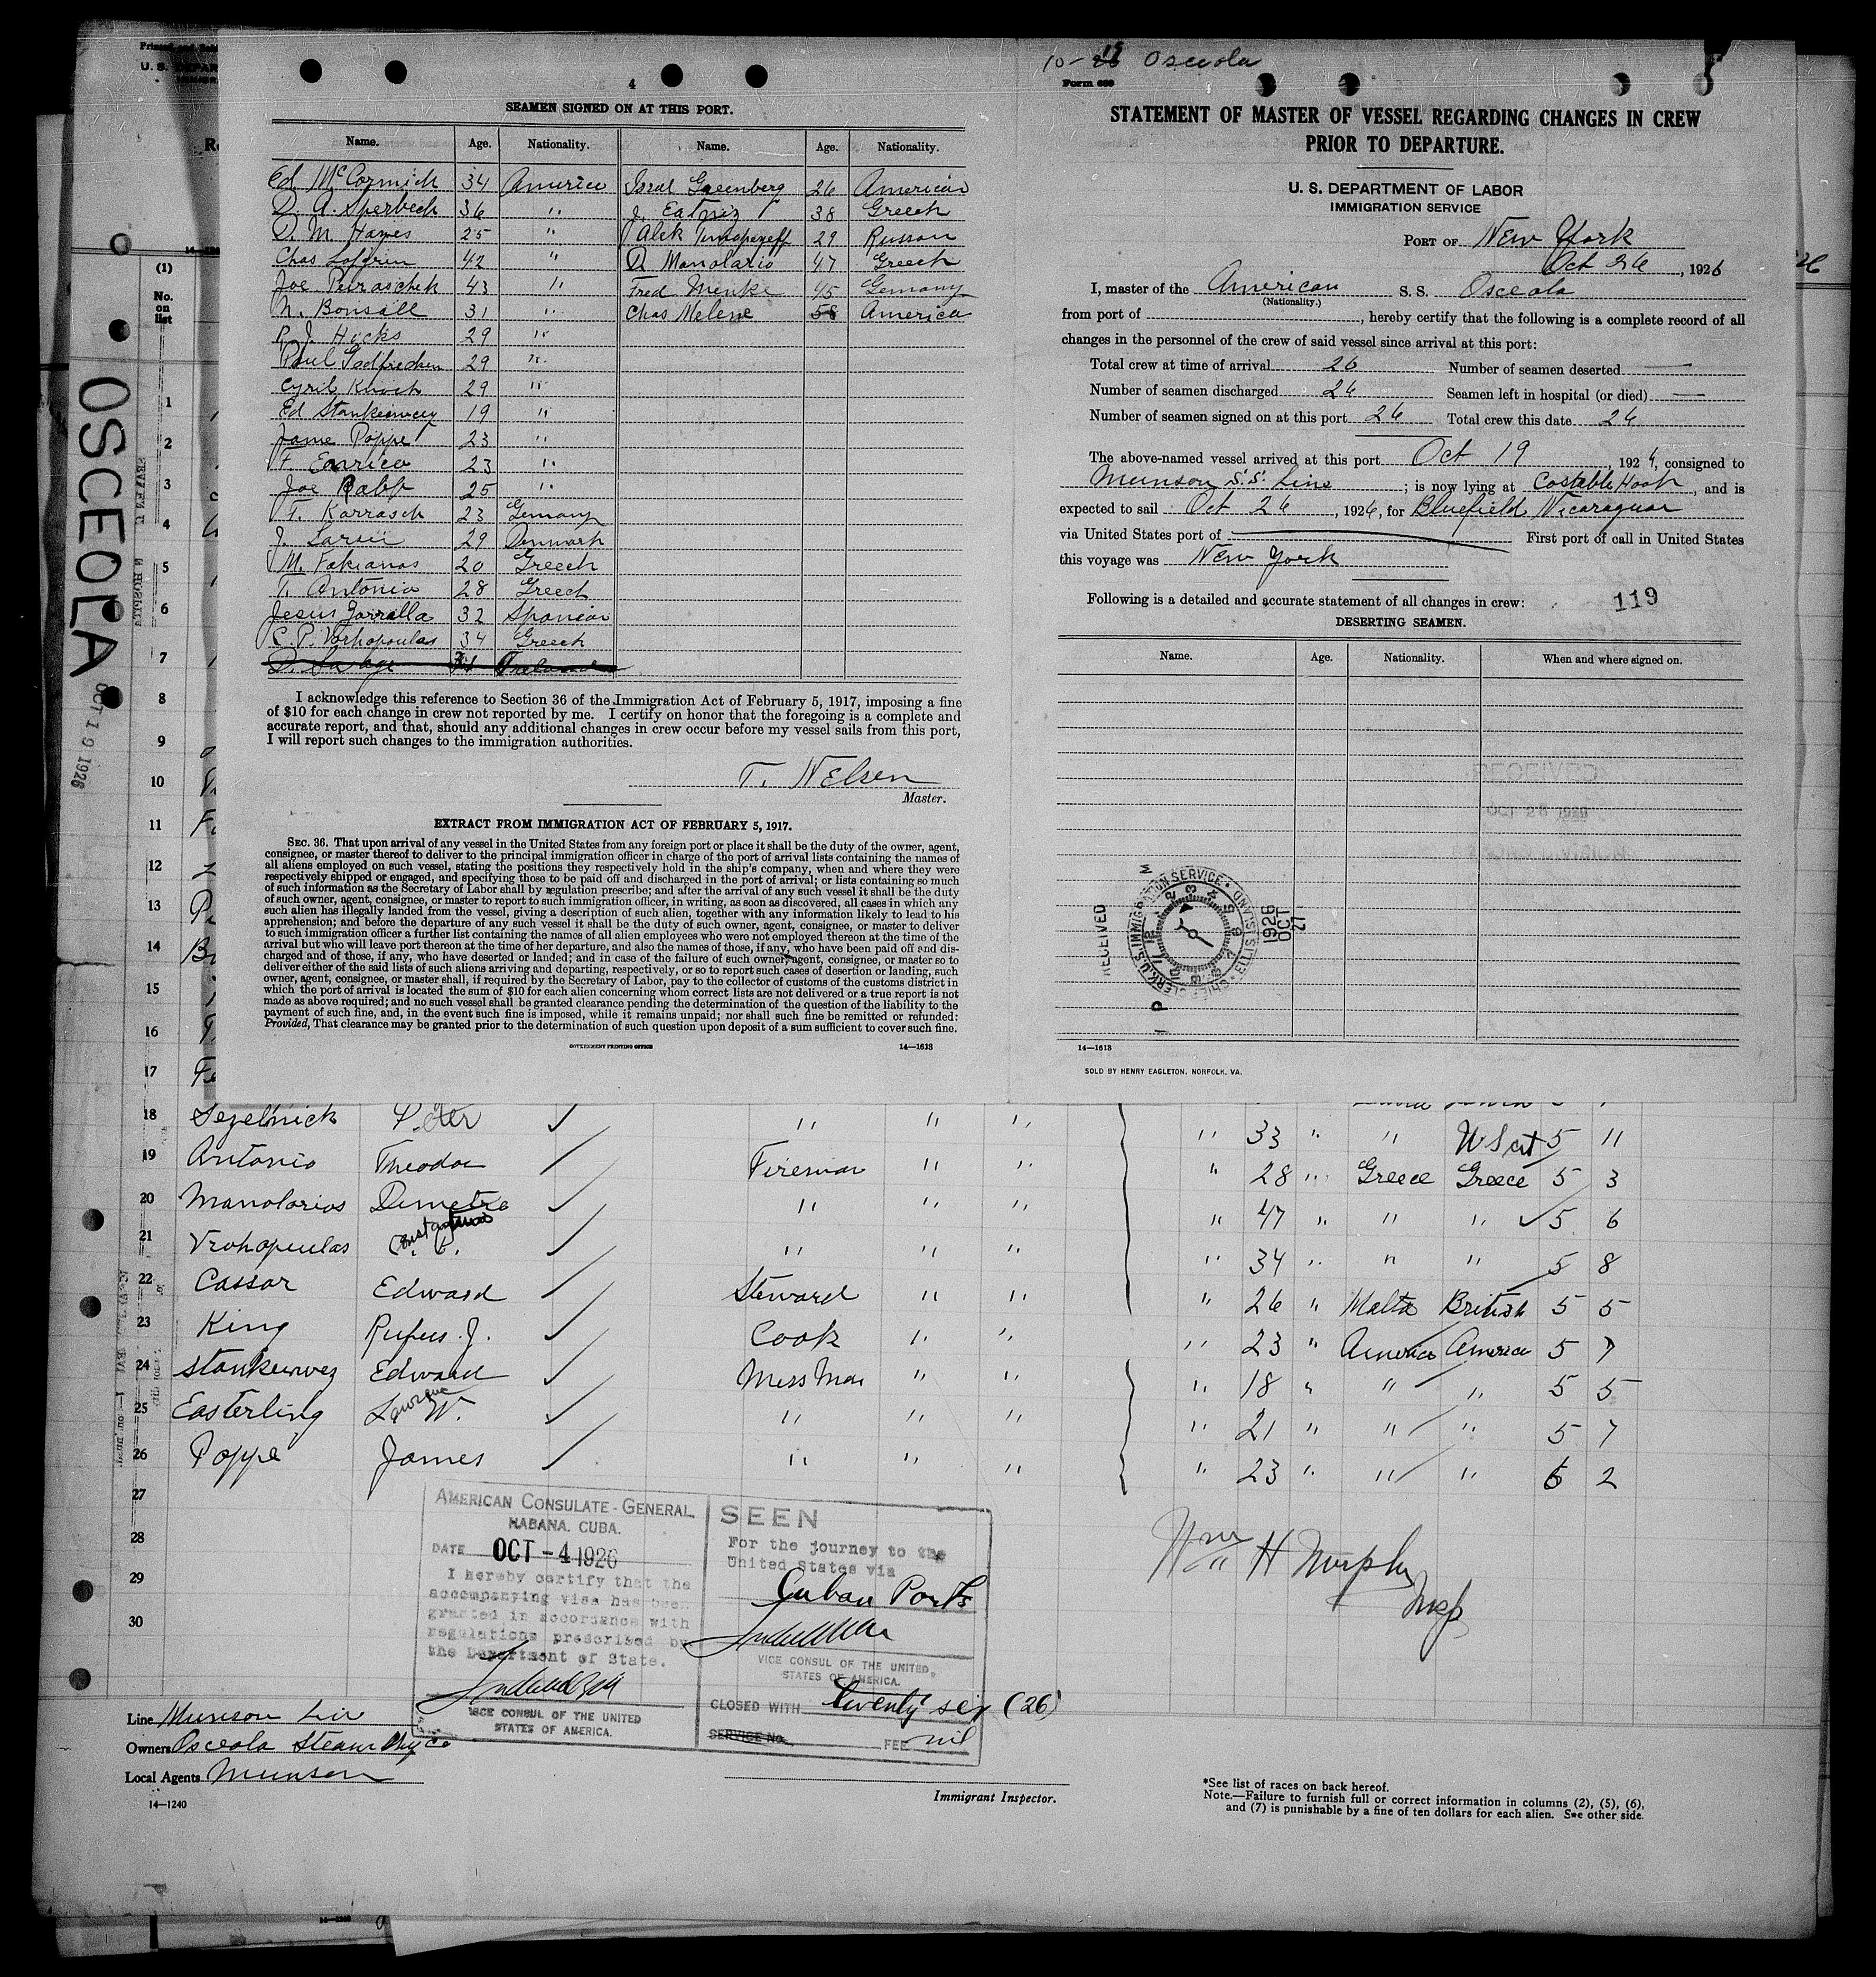 10-19 Osceola
4
SEAMEN SIGNED ON AT THIS PORT.
Name. Age. Nationality. Name. Age. Nationality.
Ed McCormick 34 America Israel Greenberg 26 American
D. A. Sperbeck 36 " J. 38 Greech
D. M. Hayes 25 " Alek 29 Russon
Chas Lofgrin 42 " D. Manolario 47 Greech
Joe 43 " Fred Menke 45 Gemany
N. Bonsall 31 " Chas Melene 58 America
R. J. Hicks 29 "
Paul 29 "
Cyril 29 "
Ed 19 "
Jame Poppe 23 "
F. Enrico 23 "
Joe Rabb 25 "
T. Karrasch 23 Gemany
J. 29 Denmark
M. Fakianos 20 Greech
T. Antonio 28 Greech
Jesus 32 Sponior
C. P. 34 Greech
I acknowledge this reference to Section 36 of the Immigration Act of February 5, 1917, imposing a fine
of $10 for each change in crew not reported by me. I certify on honor that the foregoing is a complete and
accurate report, and that, should any additional changes in crew occur before my vessel sails from this port,
I will report such changes to the immigration authorities.
T. Nelsen
Master.
EXTRACT FROM IMMIGRATION ACT OF FEBRUARY 5, 1917.
SEC. 36. That upon arrival of any vessel in the United States from any foreign port or place it shall be the duty of the owner, agent,
consignee, or master thereof to deliver to the principal immigration officer in charge of the port of arrival lists containing the names of
all aliens employed on such vessel, stating the positions they respectively hold in the ship's company, when and where they were
respectively shipped or engaged, and specifying those to be paid off and discharged in the port of arrival; or lists containing so much
of such information as the Secretary of Labor shall by regulation prescribe; and after the arrival of any such vessel it shall be the duty
of such owner, agent, consignee, or master to report to such immigration officer, in writing, as soon as discovered, all cases in which any
such alien has illegally landed from the vessel, giving a description of such alien, together with any information likely to lead to his
apprehension; and before the departure of any such vessel it shall be the duty of such owner, agent, consignee, or master to deliver
to such immigration officer a further list containing the names of all alien employees who were not employed thereon at the time of the
arrival but who will leave port thereon at the time of her departure, and also the names of those, if any, who have been paid off and dis-
charged and of those, if any, who have deserted or landed; and in case of the failure of such owner, agent, consignee, or master so to
deliver either of the said lists of such aliens arriving and departing, respectively, or so to report such cases of desertion or landing, such
owner, agent, consignee, or master shall, if required by the Secretary of Labor, pay to the collector of customs of the customs district in
which the port of arrival is located the sum of $10 for each alien concerning whom correct lists are not delivered or a true report is not
made as above required; and no such vessel shall be granted clearance pending the determination of the question of the liability to the
payment of such fine, and, in the event such fine is imposed, while it remains unpaid; nor shall such fine be remitted or refunded:
Provided, That clearance may be granted prior to the determination of such question upon deposit of a sum sufficient to cover such fine.
GOVERNMENT PRINTING OFFICE 14—1613
Form 689
STATEMENT OF MASTER OF VESSEL REGARDING CHANGES IN CREW
PRIOR TO DEPARTURE.
U. S. DEPARTMENT OF LABOR
IMMIGRATION SERVICE
PORT OF New York
Oct 26, 1926
I, master of the American S. S. Osceola
(Nationality.)
from port of , hereby certify that the following is a complete record of all
changes in the personnel of the crew of said vessel since arrival at this port:
Total crew at time of arrival 26 Number of seamen deserted —
Number of seamen discharged 26 Seamen left in hospital (or died) —
Number of seamen signed on at this port 26 Total crew this date 26
The above-named vessel arrived at this port Oct 19, 1926, consigned to
Munson S.S. Line; is now lying at Costable Hook, and is
expected to sail Oct 26, 1926, for Bluefield Nicaraguar
via United States port of First port of call in United States
this voyage was New York
Following is a detailed and accurate statement of all changes in crew: 119
DESERTING SEAMEN.
Name. Age. Nationality. When and where signed on.
RECEIVED
OCT 26 1926
RECEIVED
U.S. IMMIGRATION SERVICE
CHIEF CLERK
ELLIS ISLAND
1926 OCT 27
14—1613
SOLD BY HENRY EAGLETON, NORFOLK, VA.
OSCEOLA
OCT 19 1926
(1)
No. on list
1
2
3
4
5
6
7
8
9
10
11
12
13
14
15
16
17
18 Sezelnick Peter " " " " 33 " " U S cit 5 11
19 Antonio Theodor Fireman " " " 28 " Greece Greece 5 3
20 Manolarios Demetre " " " " 47 " " " 5 6
21 Vrohopoulas Constantinos P. " " " " 34 " " " 5 8
22 Cassar Edward Steward " " " 26 " Malta British 5 5
23 King Rufus J. Cook " " " 23 " America America 5 7
24 Stankerwez Edward Mess Man " " " 18 " " " 5 5
25 Easterling W. " " " " 21 " " " 5 7
26 Poppe James " " " " 23 " " " 6 2
27
28
29
30
AMERICAN CONSULATE-GENERAL
HABANA, CUBA.
DATE OCT -4 1926
I hereby certify that the
accompanying visa has been
granted in accordance with
regulations prescribed by
the Department of State.
VICE CONSUL OF THE UNITED
STATES OF AMERICA.
SEEN
For the journey to the
United States via
Cuban Ports
VICE CONSUL OF THE UNITED
STATES OF AMERICA.
CLOSED WITH twenty six (26)
SERVICE NO. FEE nil
Wm H Murphy
Insp
Line Munson Lin
Owners Osceola Steam Shp Co
Local Agents Munson
14—1240
Immigrant Inspector.
*See list of races on back hereof.
Note.—Failure to furnish full or correct information in columns (2), (5), (6),
and (7) is punishable by a fine of ten dollars for each alien. See other side.